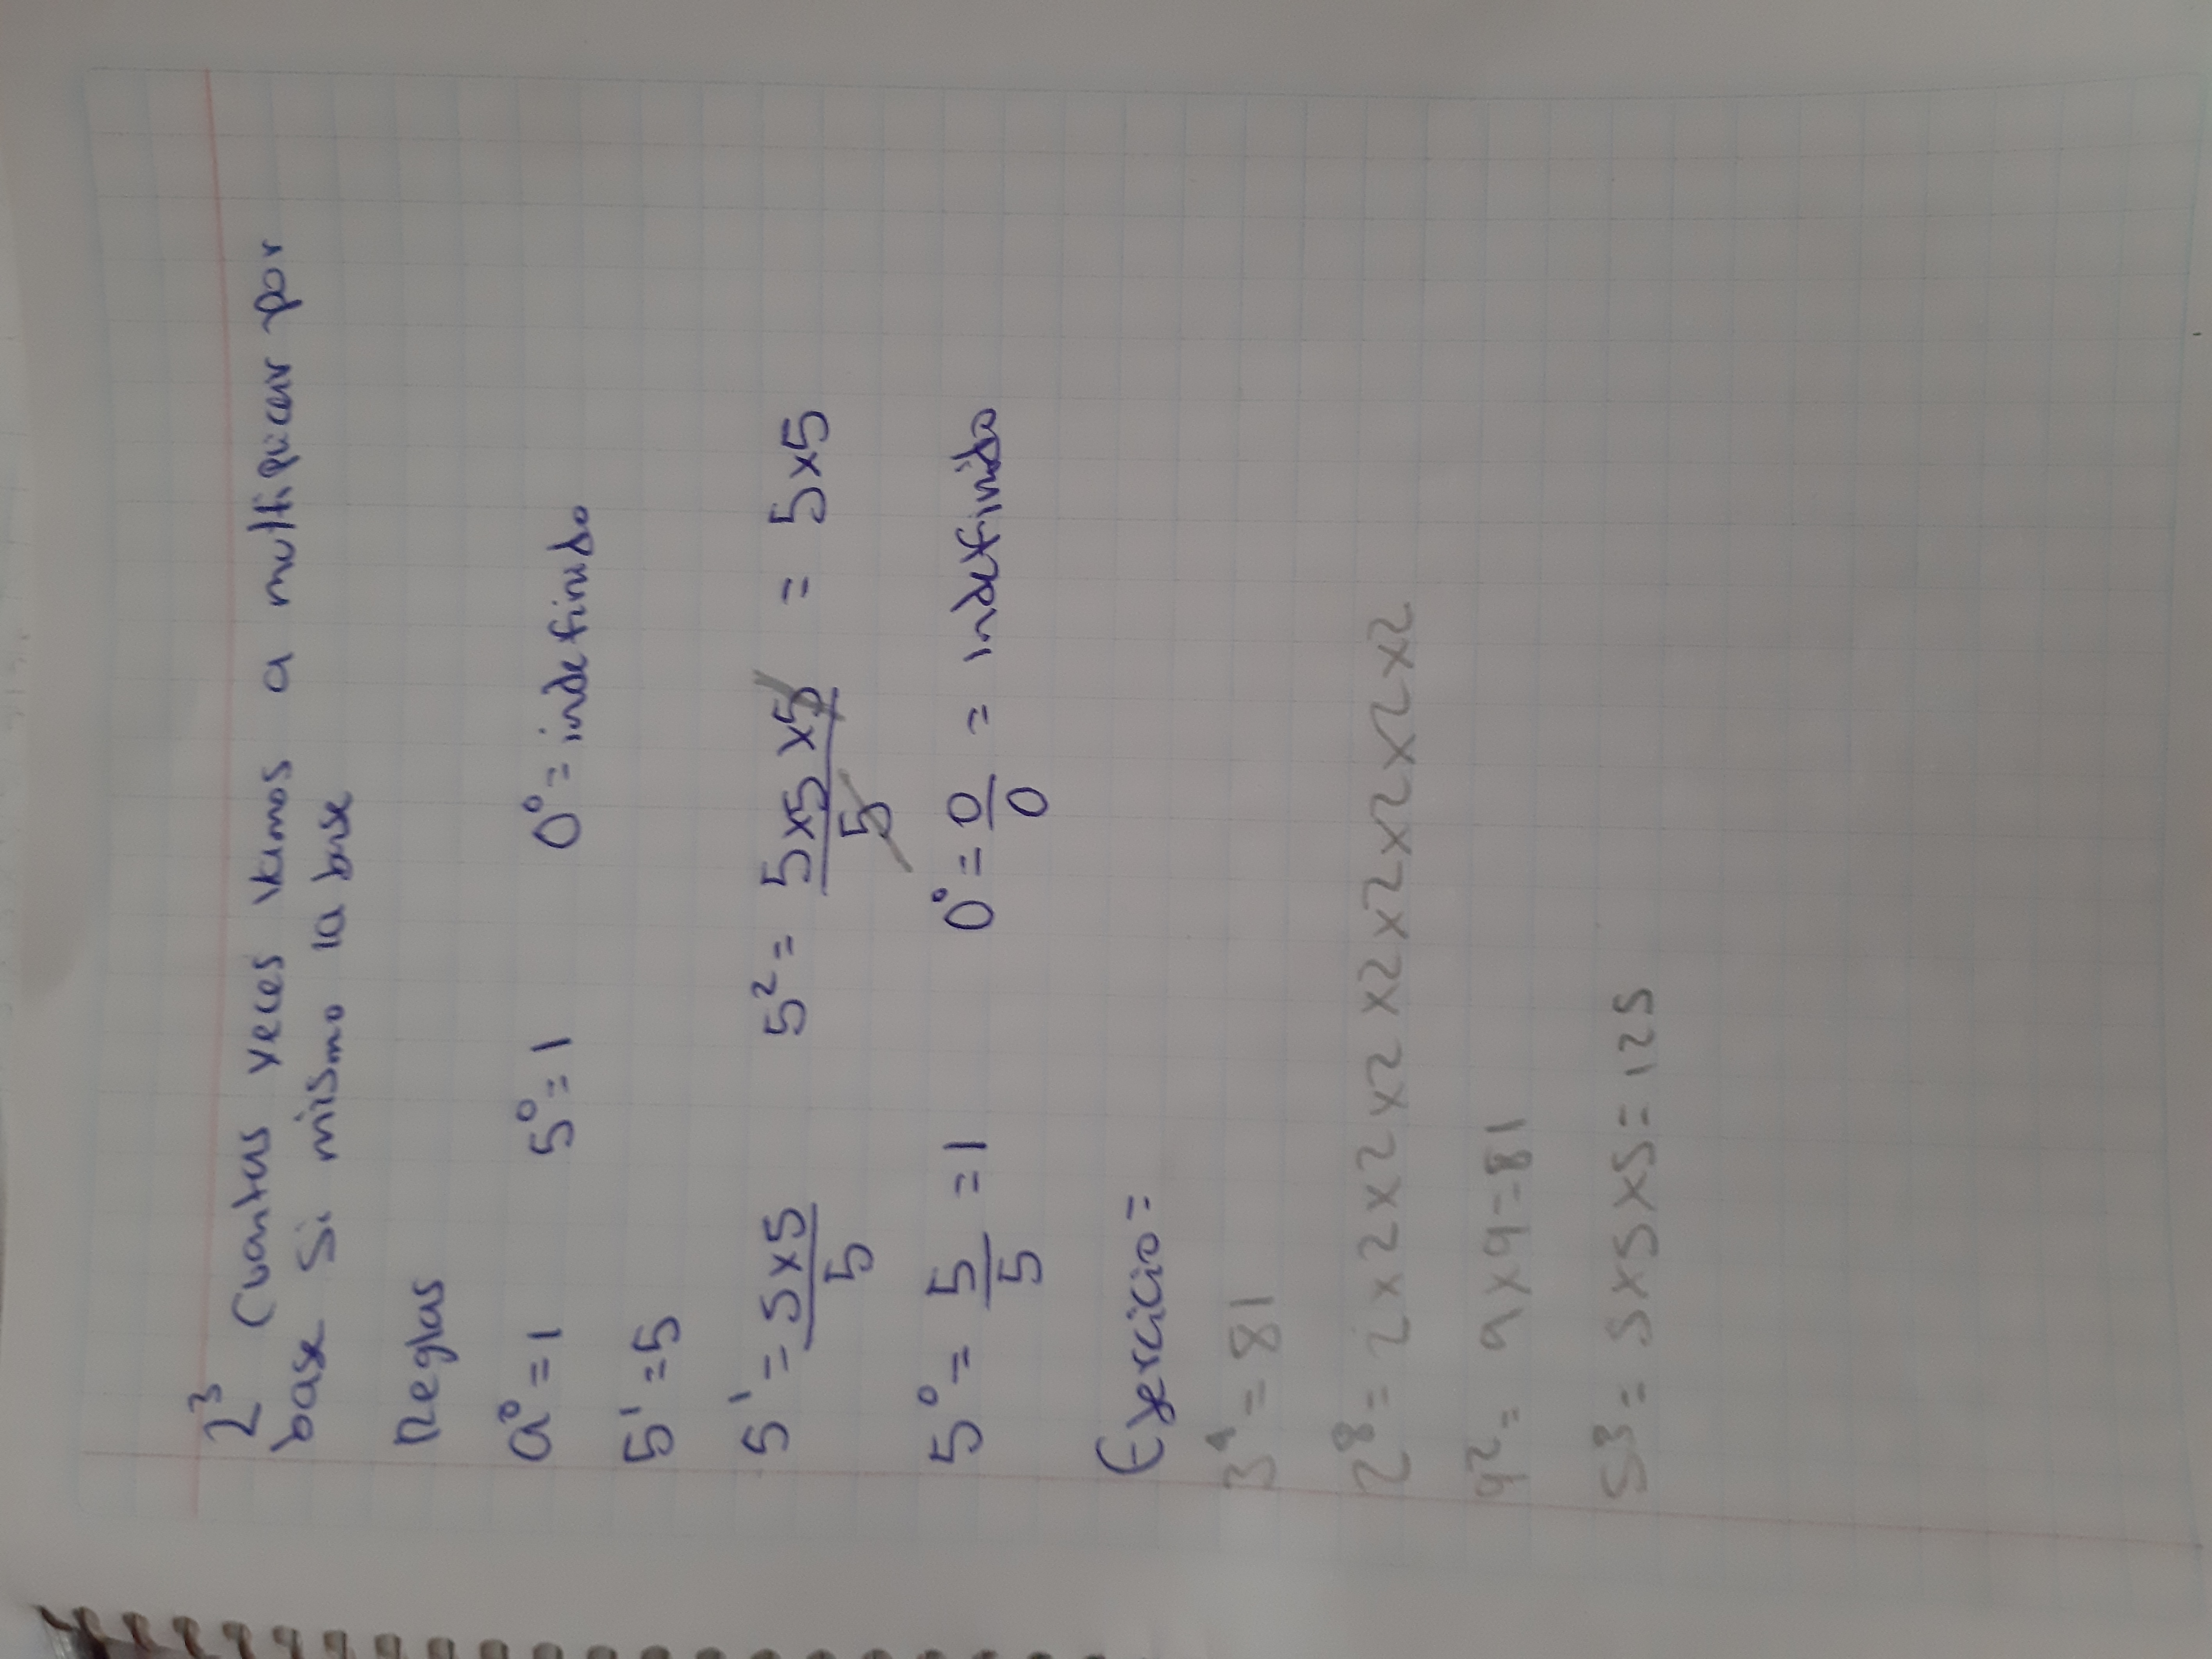 2³ Cuantas veces vamos a multiplicar por
base si mismo la base
Reglas
a⁰ = 1 5⁰ = 1 0⁰ = indefinido
5¹ = 5
5¹ = 5x5/5 5² = 5x5x5/5 = 5x5
5⁰ = 5/5 = 1 0⁰ = 0/0 = indefinido
Ejercicio =
3⁴ = 81
2⁸ = 2x2x2x2x2x2x2x2x2x2
9² = 9x9 = 81
5³ = 5x5x5 = 125